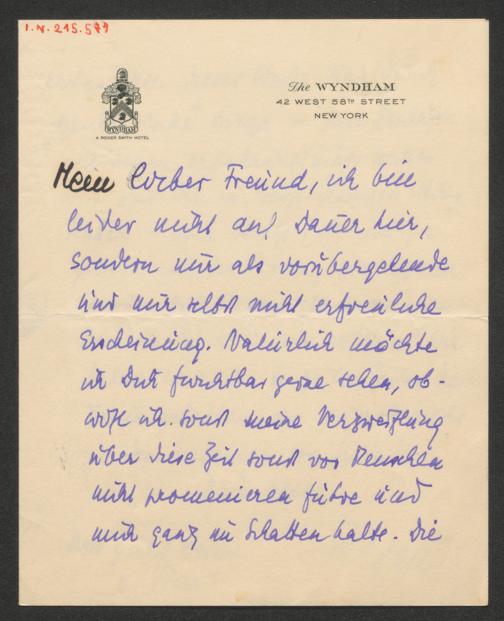 I.N. 215.579
WYNDHAM
A ROGER SMITH HOTEL
The WYNDHAM
42 WEST 58TH STREET
NEW YORK
Mein lieber Freund, ich bin
leider nicht auf Dauer hier,
sondern nur als vorübergehende
und mir selbst nicht erfreuliche
Erscheinung. Natürlich möchte
ich Dich furchtbar gerne sehen, ob-
wohl ich sonst meine Verzweiflung
über diese Zeit sonst vor Menschen
nicht promenieren führe und
mich ganz im Schatten halte. Die